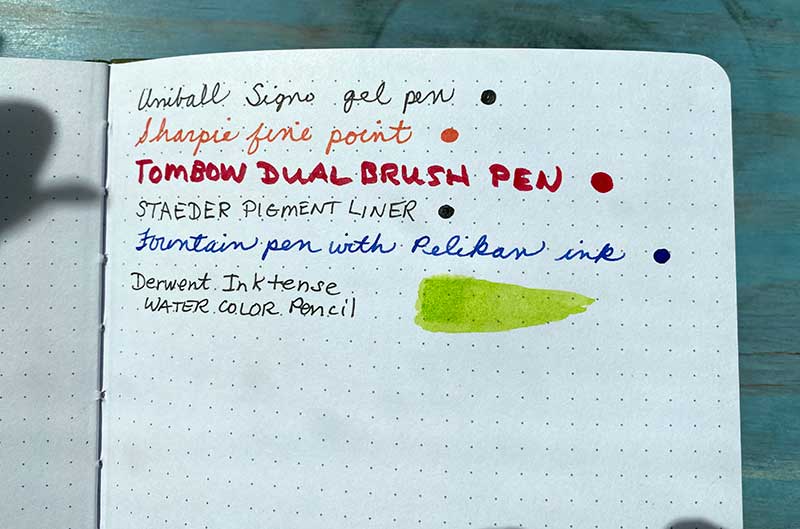 Uniball Signo gel pen
Sharpie fine point
TOMBOW DUAL BRUSH PEN
STAEDER PIGMENT LINER
Fountain pen with Pelikan ink
Derwent Inktense
WATER COLOR Pencil